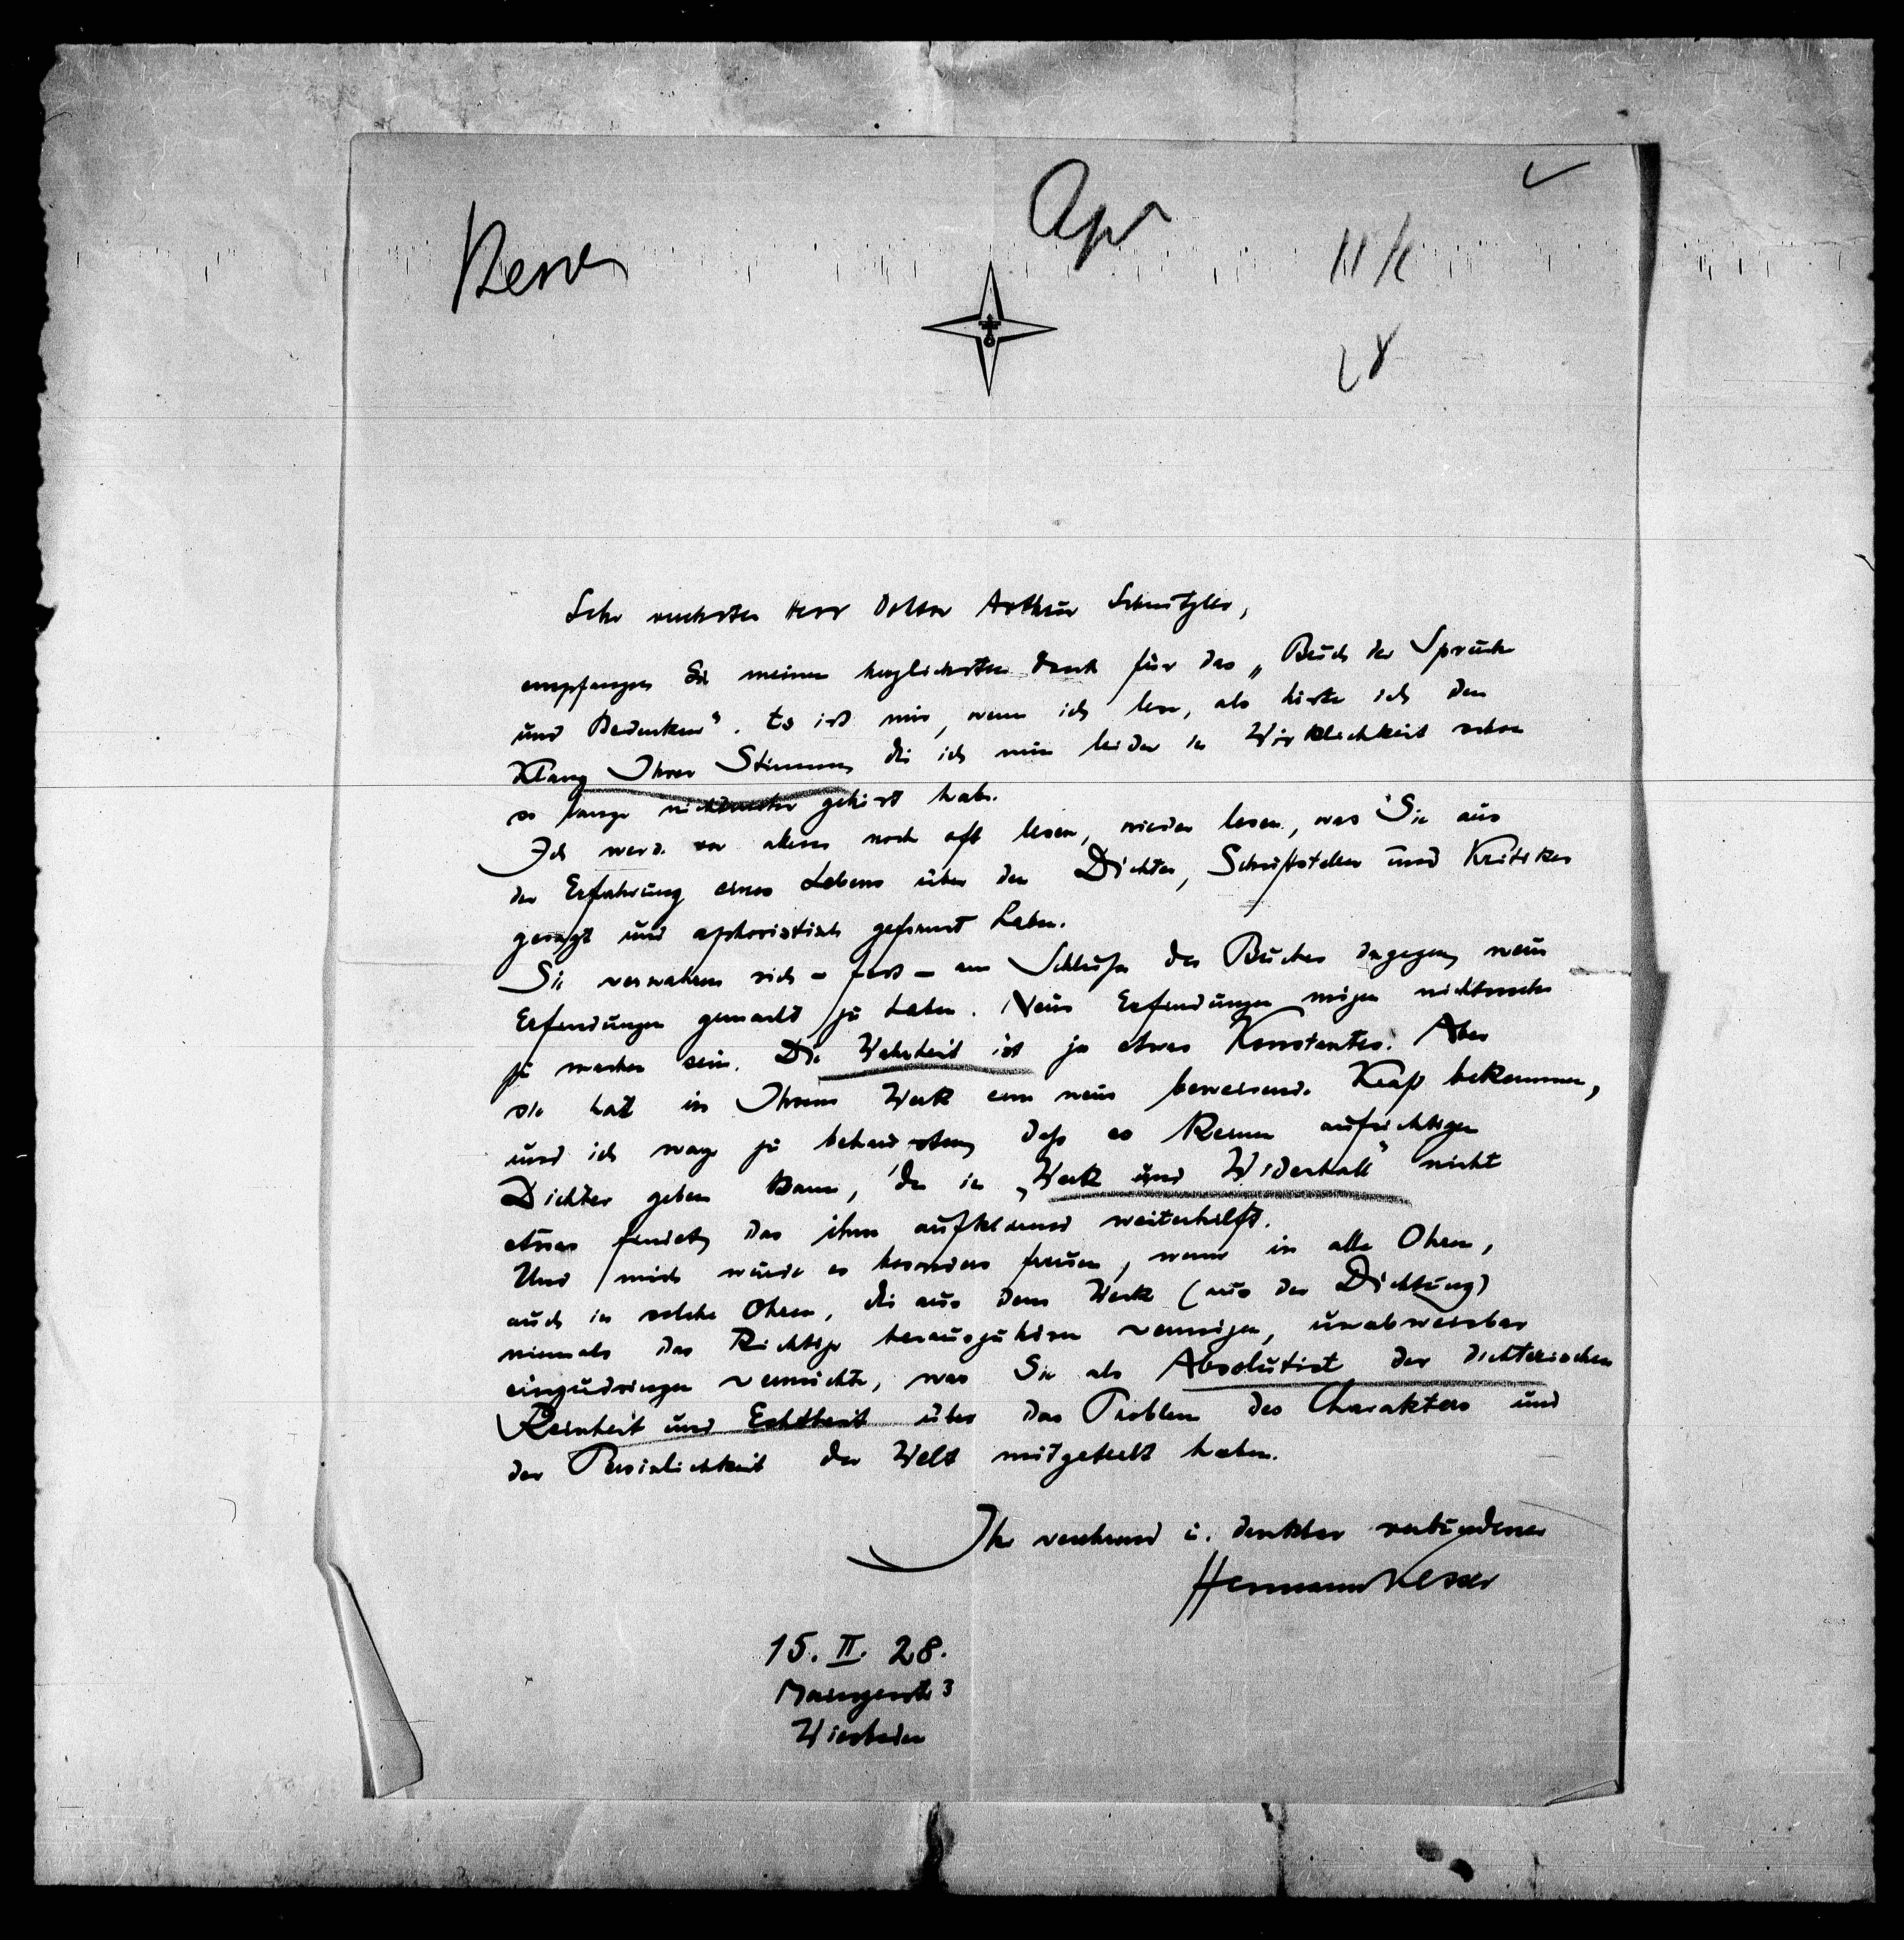 Kesser
Aph
Sehr verehrter Herr Doktor Arthur Schnitzler,
empfangen Sie meinen herzlichsten Dank für das „Buch der Sprüche
und Bedenken“. Es ist mir, wenn ich lese, als hörte ich den
Klang Ihrer Stimme, die ich nun leider in Wirklichkeit schon
so lange nichtmehr gehört habe.
Ich werde vor allem noch oft lesen, wieder lesen, was Sie aus
der Erfahrung eines Lebens über den Dichter, Schriftsteller und Kritiker
gesagt und aphoristisch geformt haben.
Sie verwahren sich – fast – am Schluße des Buches dagegen, neue
Erfindungen gemacht zu haben. Neue Erfindungen mögen nichtmehr
zu machen sein. Die Wahrheit ist ja etwas Konstantes. Aber
sie hat in Ihrem Werk eine neue beweisende Kraft bekommen,
und ich wage zu behaupten, daß es keinen aufrichtigen
Dichter geben kann, der in „Werk und Widerhall“ nicht
etwas findet, das ihm aufklärend weiterhilft.
Und mich würde es besonders freuen, wenn in alle Ohren,
auch in solche Ohren, die aus dem Werk (aus der Dichtung)
niemals das Richtige herauszuhören vermögen, unabweisbar
einzudringen vermöchte, was Sie als Absolutist der dichterischen
Reinheit und Echtheit über das Problem des Charakters und
der Persönlichkeit der Welt mitgeteilt haben.
Ihr verehrend u. dankbar verbundener
Hermann Kesser
15. II. 28.
Mainzerstr 3
Wiesbaden